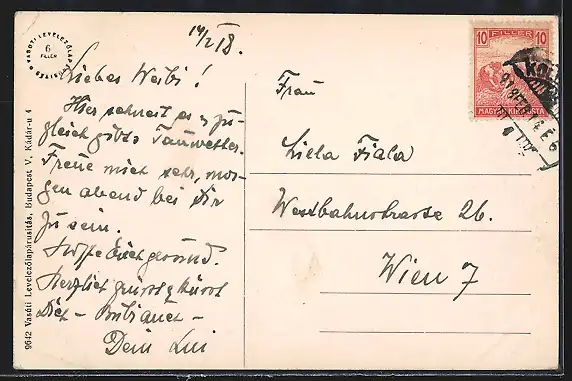 VASÚTI LEVELEZŐLAPÁRUSÍTÁS
6
FILLÉR
14/2 18.
Liebes Weibi!
Hier schneit es & zu-
gleich gibts Tauwetter.
Freue mich sehr, mor-
gen abend bei Dir
zu sein.
Hoffe Euch gesund.
Herzlich grüsst & küsst
Dich - Bubi auch -
Dein Lui
Frau
Liela Fiala
Westbahnstrasse 26.
Wien 7
10 FILLÉR 10
MAGYAR KIR. POSTA
9642 Vasúti Levelezőlapárusítás, Budapest V, Kádár-u 4